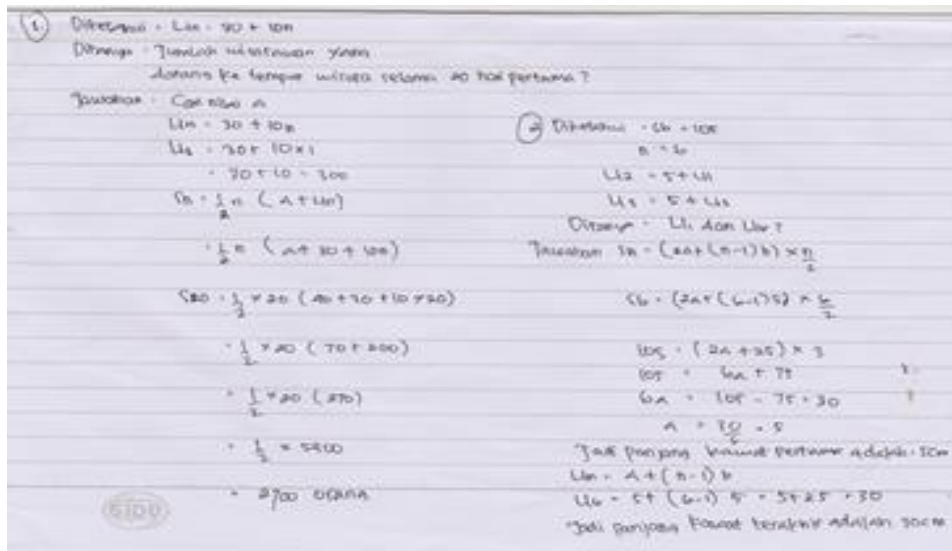 1. Diketahui : Un = 30 + 10n
Ditanya : Jumlah wisatawan yang
datang ke tempat wisata selama 20 hari pertama ?
Jawaban : Cari nilai a
Un = 30 + 10n
U1 = 30 + 10 x 1
= 30 + 10 =
Sn = 1/2 n ( a + Un)
= 1/2 n ( a + 30 + 10n)
S20 = 1/2 x 20 ( 40 + 30 + 10 x 20)
= 1/2 x 20 ( 70 + 200)
= 1/2 x 20 ( 270)
= 1/2 x 5400
= 2700 orang
SIDU
2 Diketahui : S6 = 105
U2 = 5 + U1
Ditanya : U1 dan ?
Jawaban Sn = (2a + (n-1) b) x n/2
S6 = (2a + (6-1) 5) x 6/2
105 = ( 2a + 25 ) x 3
105 = 6a + 75
6a = 105 - 75 = 30
a = 30/6 = 5
Jadi panjang kawat pertama adalah 5cm
Un = a + (n-1) b
U6 = 5 + (6-1) 5 = 5 + 25 = 30
Jadi panjang kawat terakhir adalah 30cm